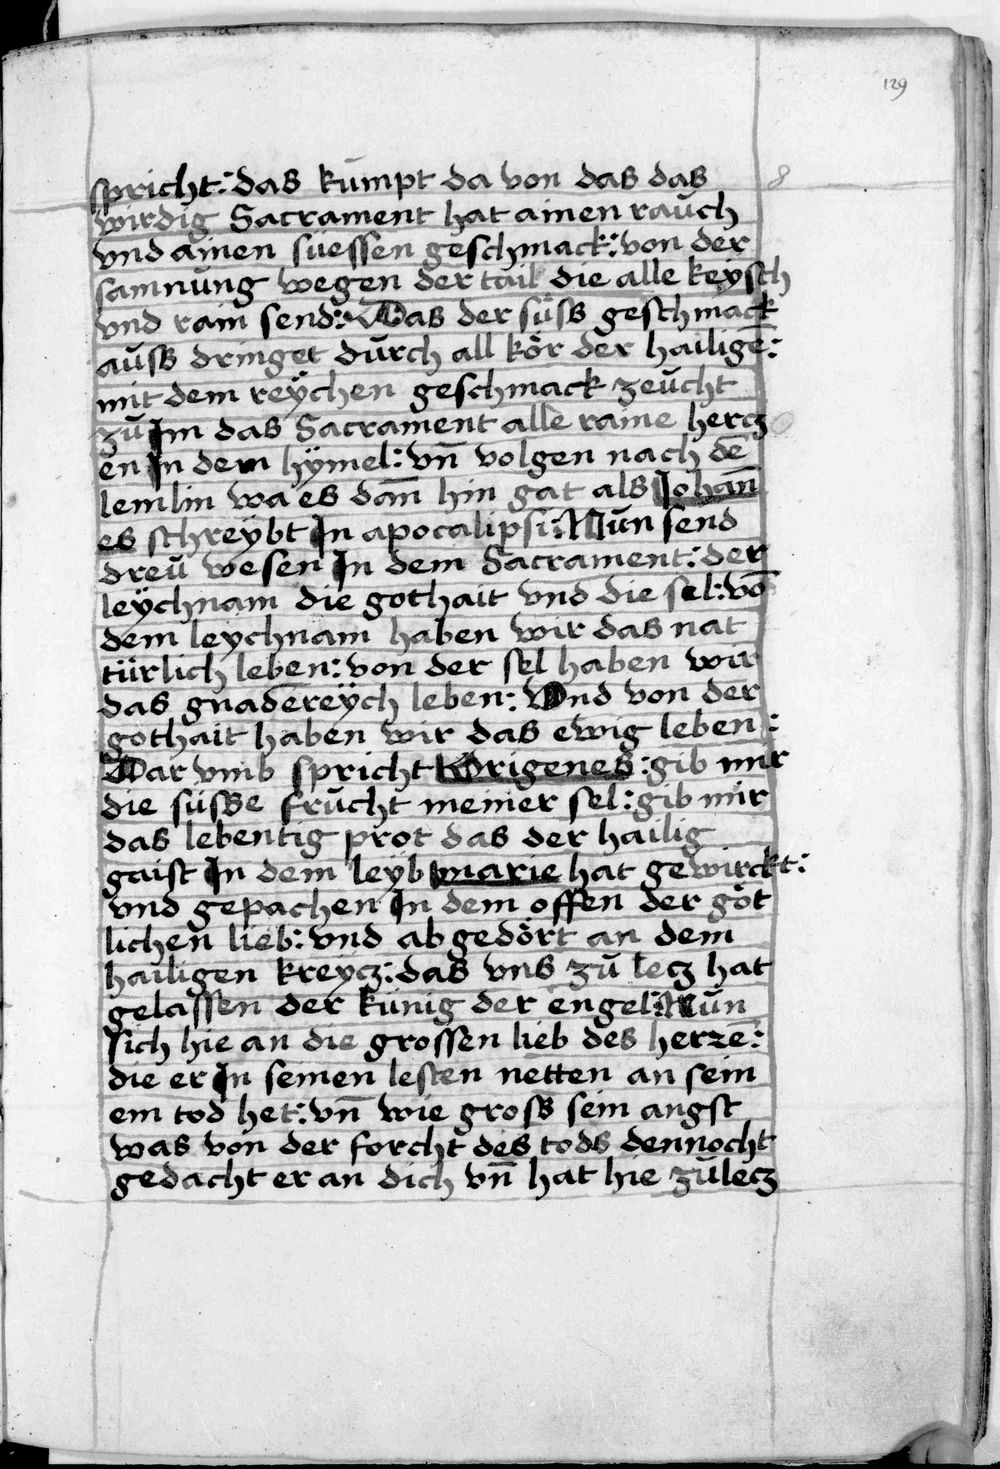 129
8
spricht: das kumpt da von das das
wirdig Sacrament hat ainen rauch
vnd ainen süessen geschmack: von der
samnung wegen der tail die alle keysch
vnd rain send: Das der süsß geschmack
ausß dringet durch all kör der hailigē:
mit dem reÿchen geschmack zeucht
zu Im das Sacrament alle raine hercz
en In dem hÿmel: vn̄ volgen nach dē
lemlin wa es dan̄ hin gat als Johan̄
es schreÿbt In apocalipsi: Nun send
dreü wesen In dem Sacrament: der
leÿchnam die gothait vnd die sel: vō
dem leychnam haben wir das nat
türlich leben: von der sel haben wir
das gnadereÿch leben: Vnd von der
gothait haben wir das ewig leben:
Dar vmb spricht Origenes: gib mir
die süsße frucht meiner sel: gib mir
das lebentig prot das der hailig
gaist In dem leÿb marie hat gewirckt:
vnd gepachen In dem offen der göt
lichen lieb: vnd ab gedört an dem
hailigen kreÿcz: das vns zu lecz hat
gelassen der künig der engel: Nun
sich hie an die grossen lieb des herze:
die er In seinen lesten netten an sein
em tod het: vn̄ wie grosß sein angst
was von der forcht des tods dennocht
gedacht er an dich vn̄ hat hie zu lecz